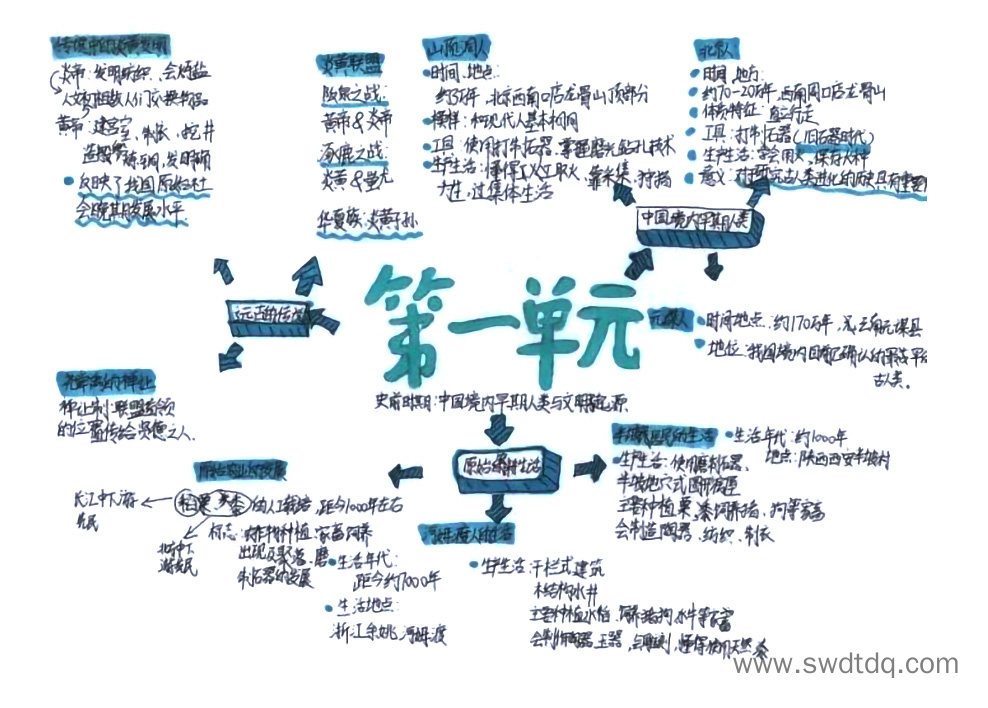 第一单元
史前时期：中国境内早期人类与文明起源
中国境内早期人类
北京人
时间、地方：
约70-20万年，西南周口店龙骨山
体质特征：直立行走
工具：打制石器（旧石器时代）
生产生活：学会用火，保存火种
山顶洞人
时间、地点：
北京西南口店龙骨山顶部分
模样：和现代人基本相同
工具：使用打制石器，掌握磨光钻孔技术
生产生活：懂得人工取火，靠采集、狩猎
过集体生活
元谋人
时间地点：约170万年，云南元谋县
地位：我国境内目前已确认的最早
古人类。
原始农耕生活
半坡居民的生活
生活年代：约1000年
地点：陕西西安半坡村
生产生活：使用磨制石器、
半地穴式圆形房屋
主要种植粟，饲养猪、狗等家畜
会制造陶器、纺织、制衣
河姆渡人的生活
生产生活：干栏式建筑
木结构水井
主要种植水稻，饲养猪狗水牛等家畜
会制作陶器，玉器，会雕刻，懂得使用天然漆
生活年代：
距今约7000年
生活地点：
浙江余姚，河姆渡
原始农业的发展
的人工栽培，距今1000年左右
长江中下游
标志：农作物种植，家畜饲养
出现及聚落、磨
制石器的发展
远古的传说
炎黄联盟
阪泉之战：
黄帝&炎帝
涿鹿之战：
炎黄&蚩尤
华夏族：炎黄子孙
炎帝：发明纺织、会煮盐
黄帝：建宫室、制衣、挖井
反映了我国原始社
会晚期发展水平
尧舜禹的禅让
禅让制：联盟首领
的位置传给贤德之人.
www.swdtdq.com